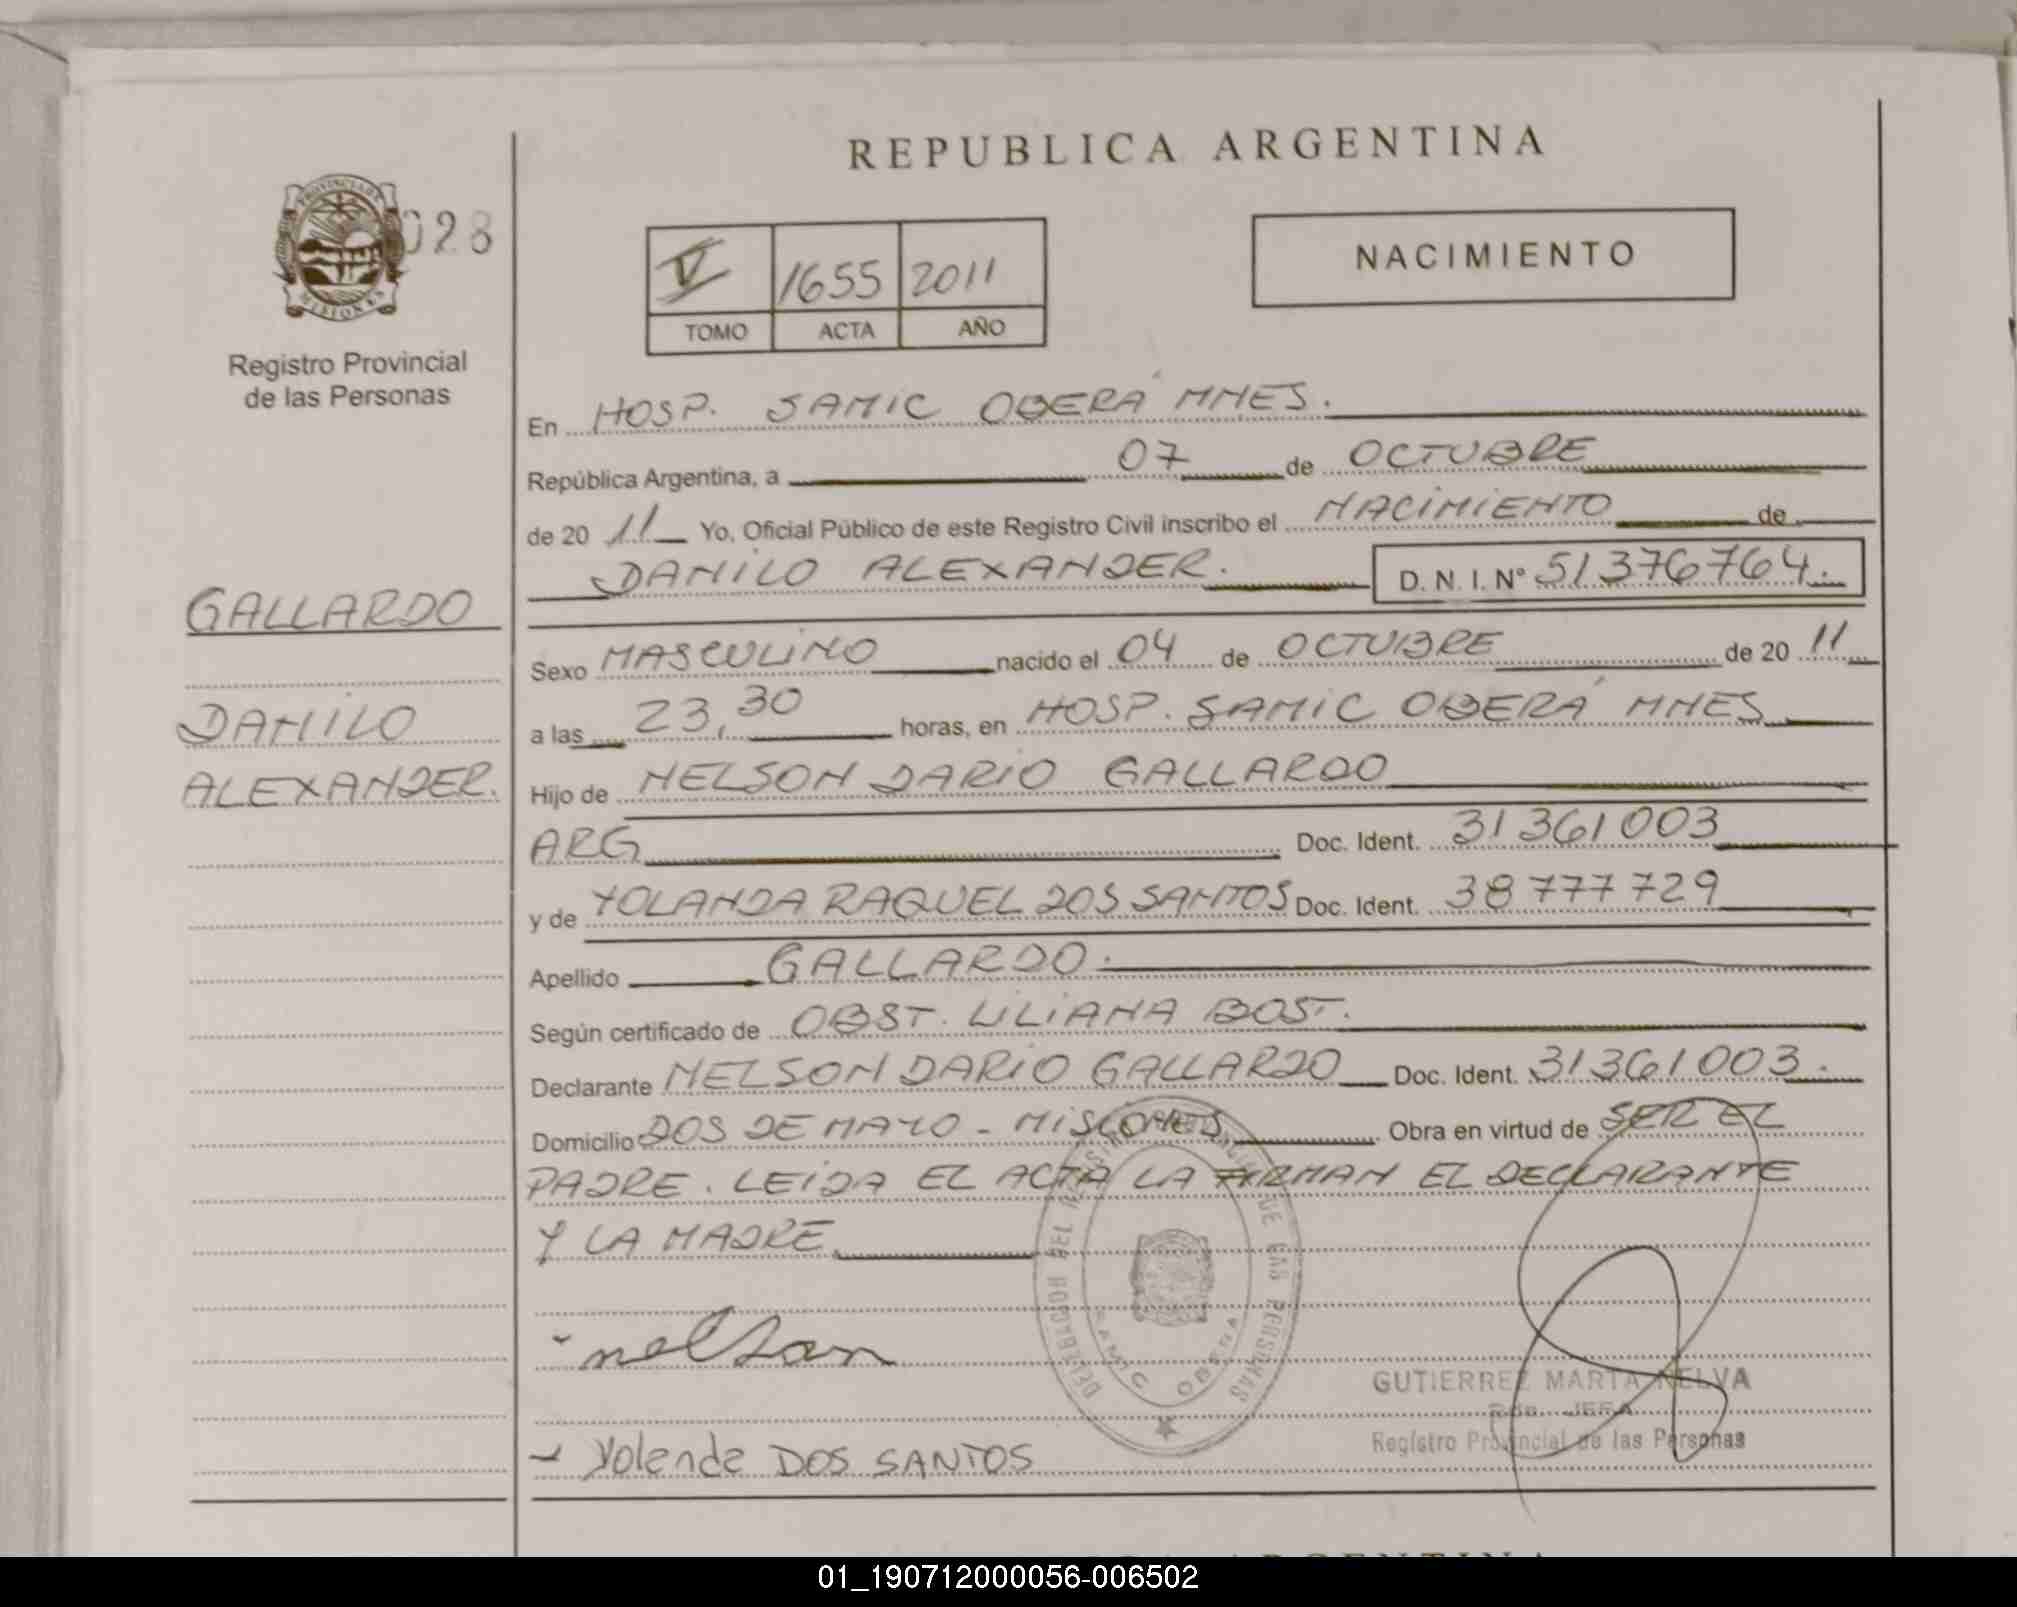 REPUBLICA ARGENTINA
PROVINCIA DE MISIONES
028
Registro Provincial
de las Personas
V 1655 2011
TOMO ACTA AÑO
NACIMIENTO
En HOSP. SAMIC OBERÁ MNES.
República Argentina, a 07 de OCTUBRE
de 20 11 Yo, Oficial Público de este Registro Civil inscribo el NACIMIENTO de
DANILO ALEXANDER. D. N. I. Nº 51376764.
GALLARDO
DANILO
ALEXANDER.
Sexo MASCULINO nacido el 04 de OCTUBRE de 20 11
a las 23,30 horas, en HOSP. SAMIC OBERÁ MNES
Hijo de NELSON DARIO GALLARDO
ARG Doc. Ident. 31361003
y de YOLANDA RAQUEL DOS SANTOS Doc. Ident. 38777729
Apellido GALLARDO.
Según certificado de OBST. LILIANA BOST.
Declarante NELSON DARIO GALLARDO Doc. Ident. 31361003.
Domicilio DOS DE MAYO - MISIONES, Obra en virtud de SER EL
PADRE. LEIDA EL ACTA LA FIRMAN EL DECLARANTE
Y LA MADRE
nelson
Yolende DOS SANTOS
DE LAS PERSONAS
SAMIC OBERA
GUTIERREZ MARTA NELVA
JEFA
Registro Provincial de las Personas
ARGENTINA
01_190712000056-006502